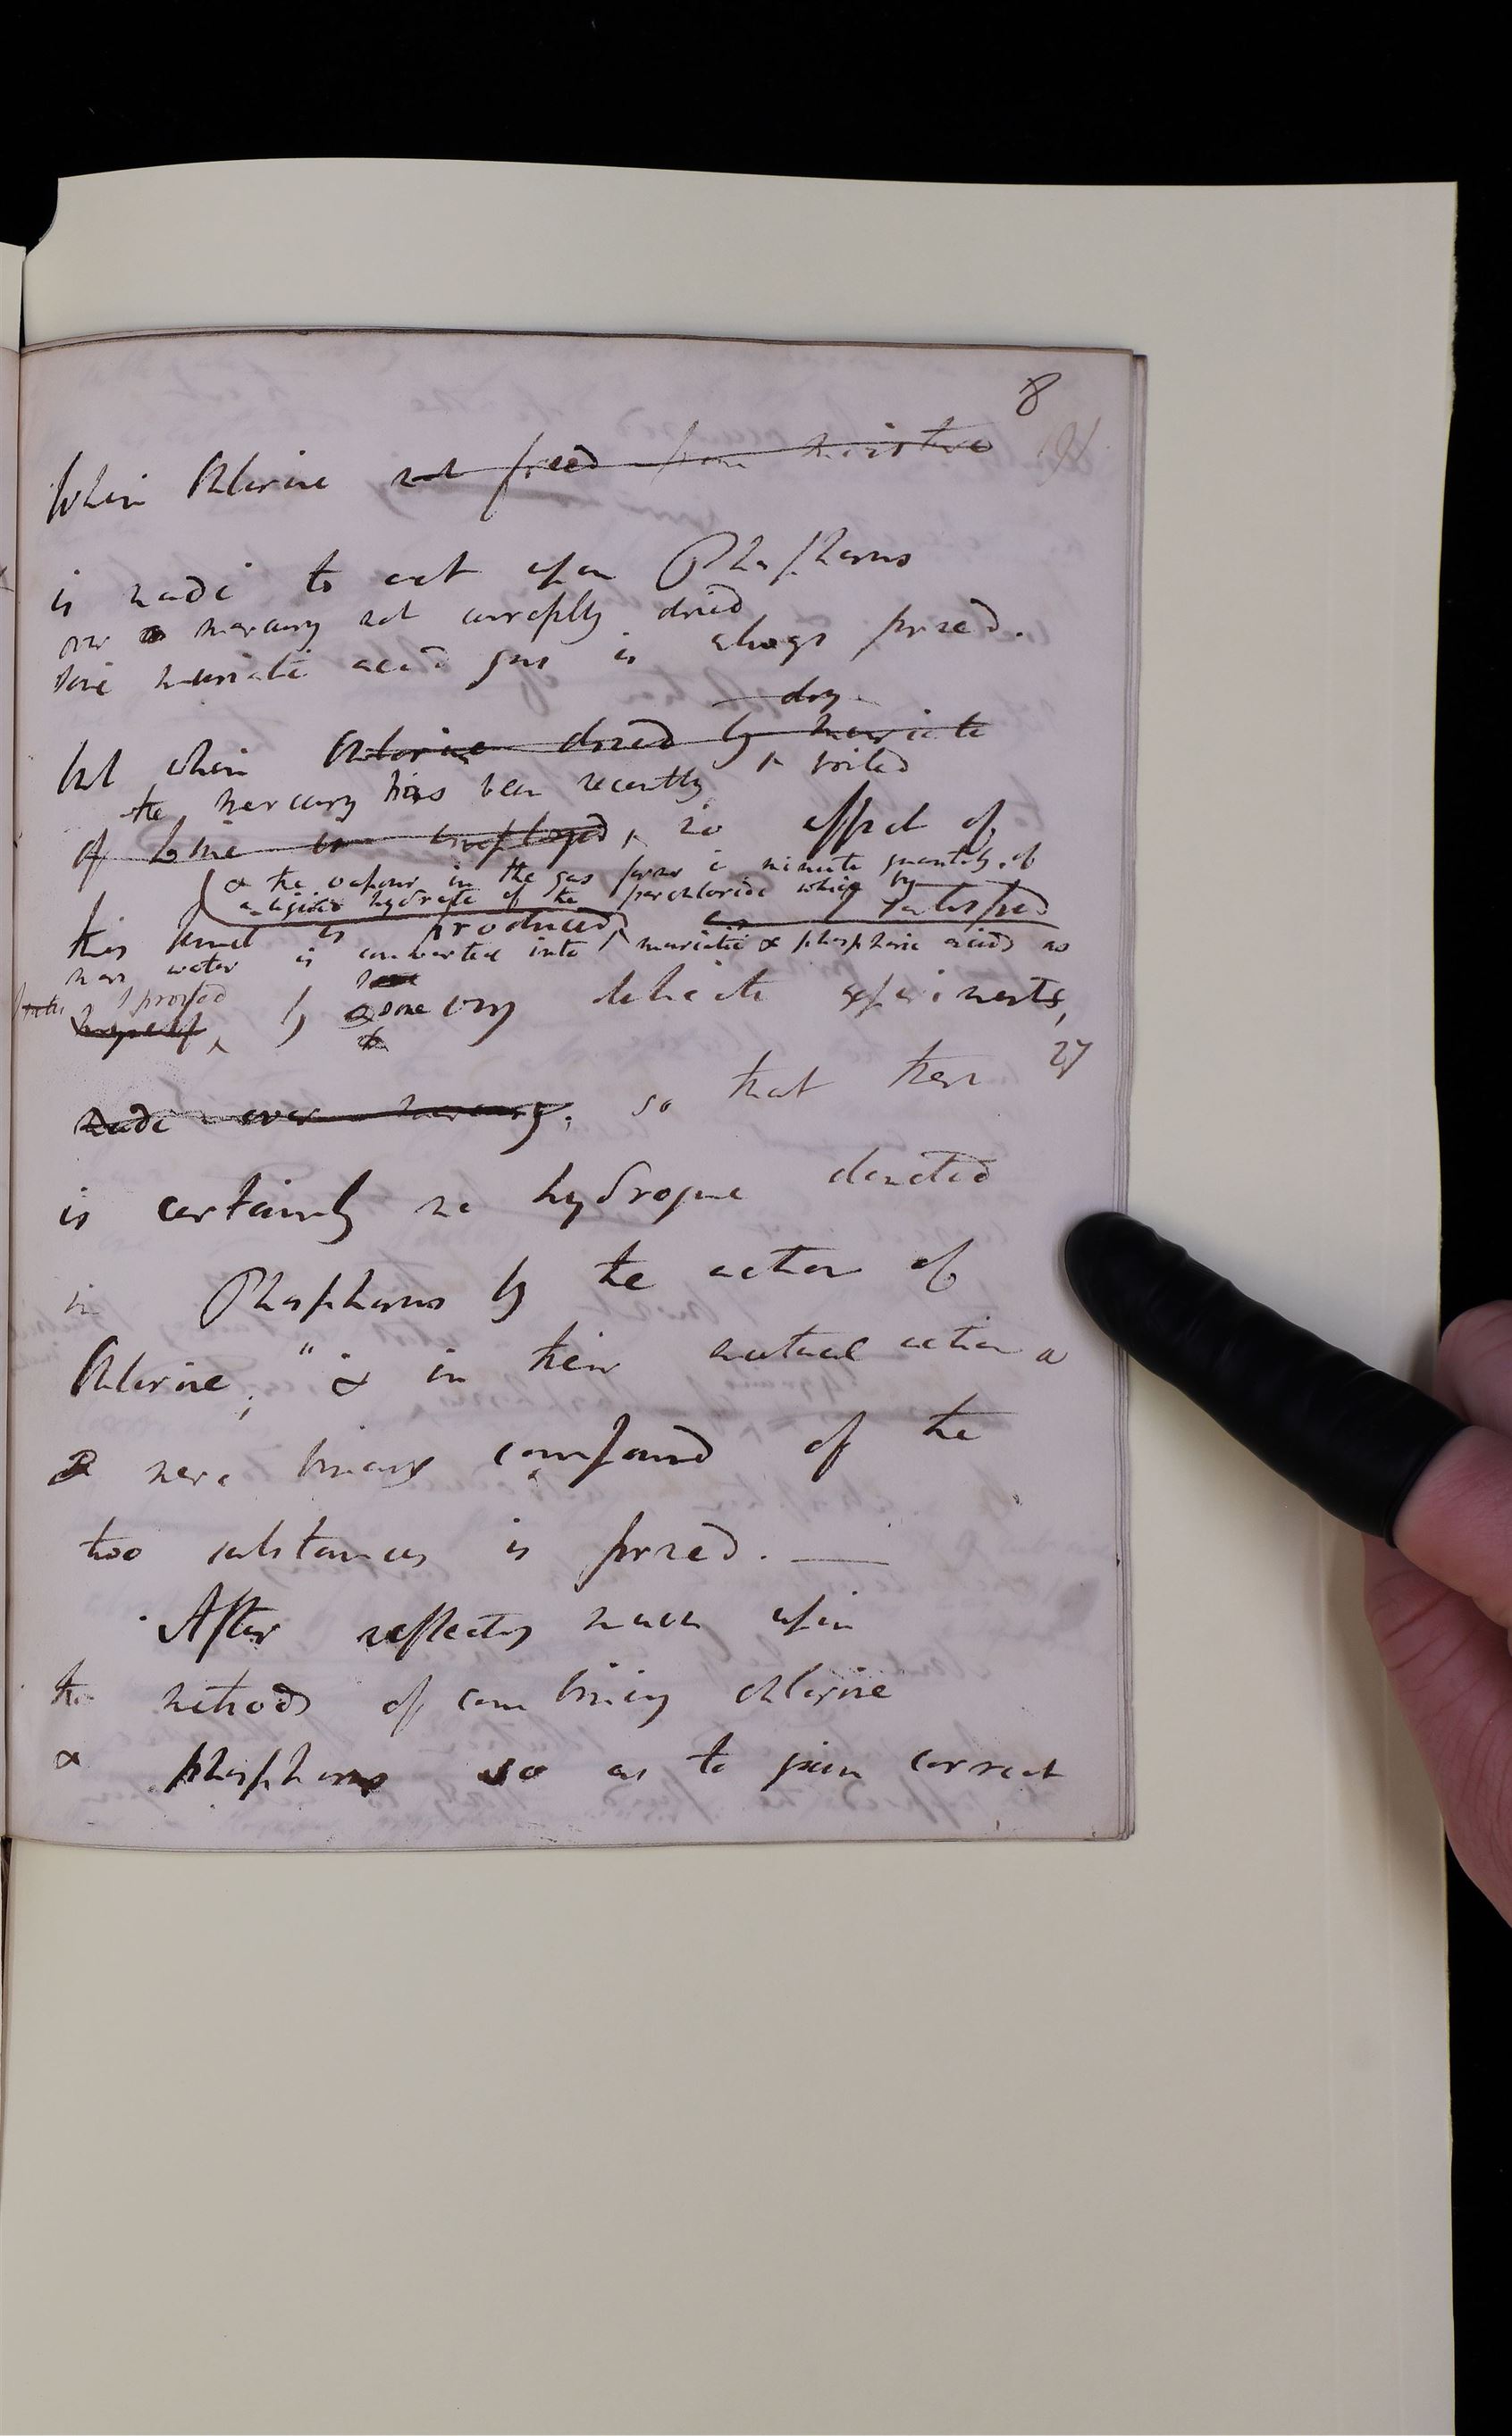 8
When Chlorine not freed from moisture
is made to act upon Phosphorus
over mercury not carefully dried
some muriatic acid gas is always formed.
dry
but when Chlorine dried by muriate
the mercury has been recently boiled
of Lime is employed, no effect of
& the vapour in the gas forms a minute quantity of
a liquid hydrate of the perchloride which by
this kind is produced, as satisfied
more water is converted into muriatic & phosphoric acids as
I proved
myself by some very delicate experiments,
27
made over mercury; so that there
is certainly no hydrogene denoted
in Phosphorus by the action of
Chlorine; " & in their mutual action a
mere binary compound of the
two substances is formed. —
After reflecting much upon
the methods of combining chlorine
& phosphorus so as to gain correct